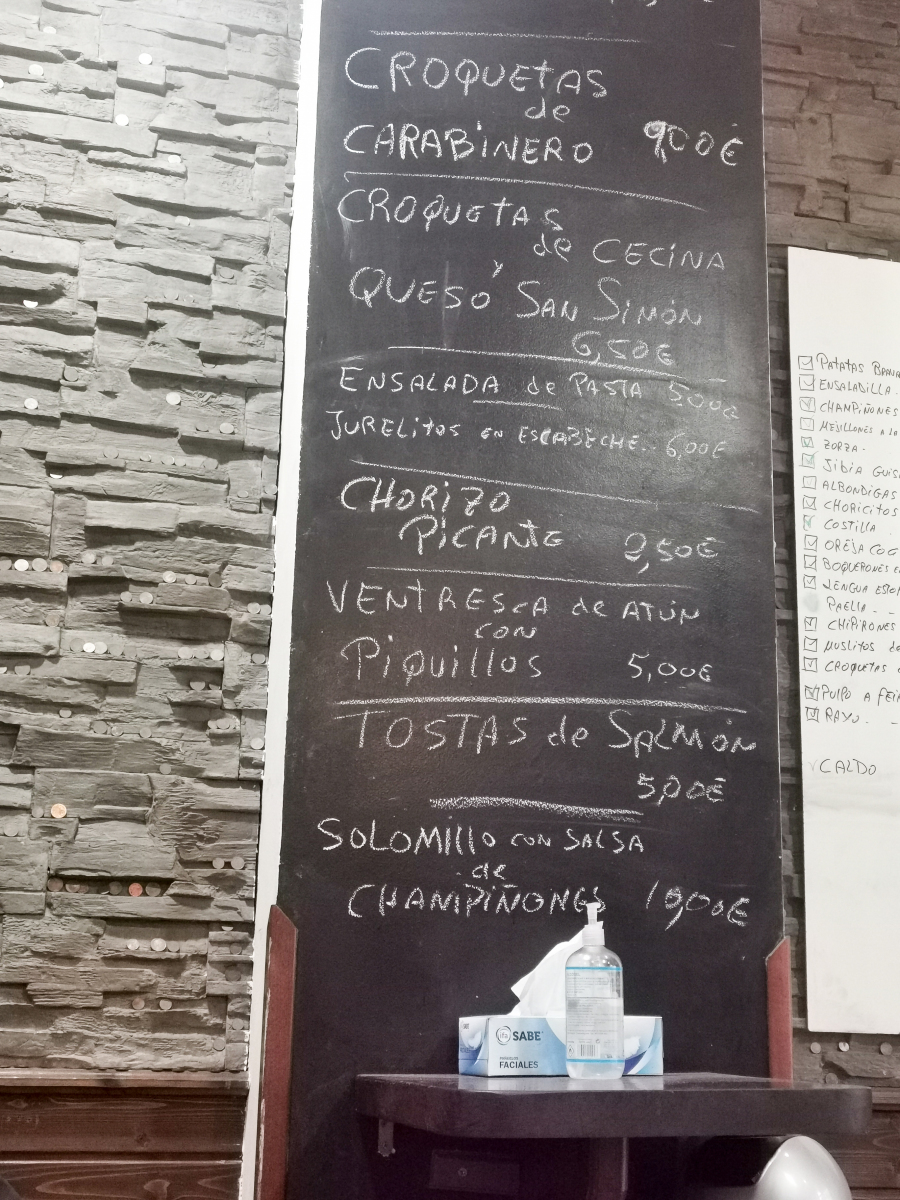 CROQUETAS
de
CARABINERO 9,00€
CROQUETAS
de CECINA
y
QUESO SAN SIMÓN
6,50€
ENSALADA de PASTA 5,00€
JURELITOS EN ESCABECHE.. 6,00€
CHORIZO
PICANTE 2,50€
VENTRESCA de ATÚN
CON
PiQUillOS 5,00€
TOSTAS de SALMÓN
5,00€
SOLOMIllO CON SALSA
de
CHAMPIÑONES
SABE
FACIALES
PATATAS BRAVA
ENSALADILLA.
CHAMPIÑONES
MEJILLONES A LA
ZORZA.
JIBIA GUIS
ALBONDIGAS
CHORICITOS
COSTILLA
OREJA COC
BOQUERONES E
LENGUA
PAELLA. - -
CHIPIRONES
MUSLITOS de
CROQUETAS
PULPO A FEIR
RAXO. -
CALDO